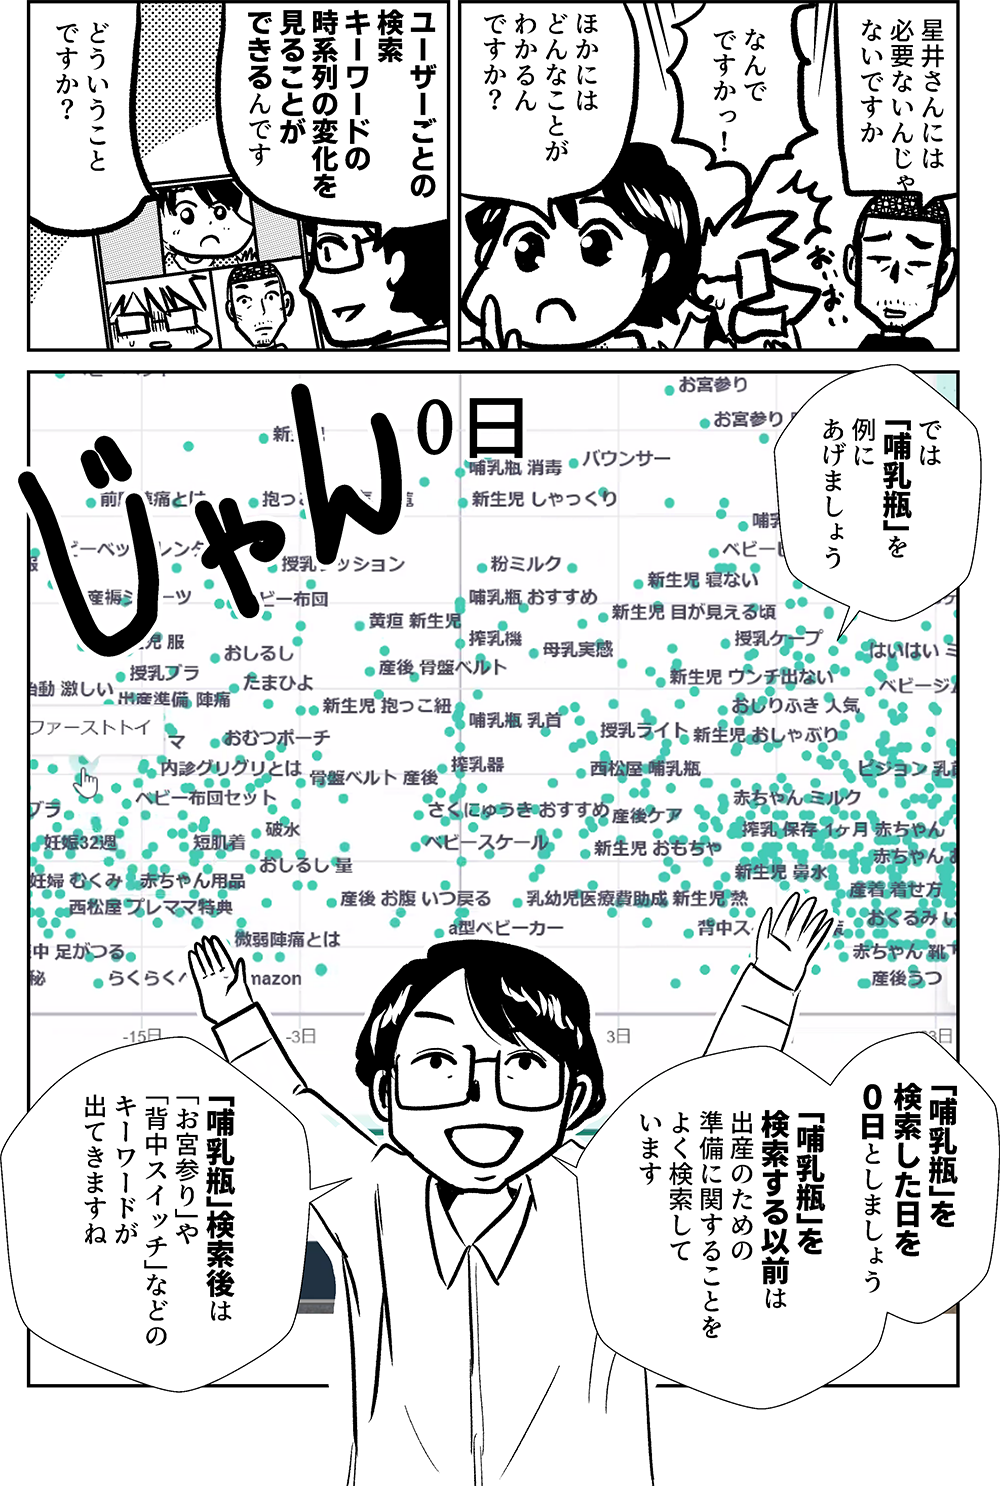 星井さんには
必要ないんじゃ
ないですか
なんで
ですかっ！
おいおい
ほかには
どんなことが
わかるん
ですか？
ユーザーごとの
検索
キーワードの
時系列の変化を
見ることが
できるんです
どういうこと
ですか？
では
「哺乳瓶」を
例に
あげましょう
じゃん
0日
お宮参り
お宮参り
哺乳瓶 消毒
バウンサー
新生児 しゃっくり
授乳クッション
粉ミルク
新生児 寝ない
産褥ショーツ
ベビー布団
哺乳瓶 おすすめ
新生児 目が見える頃
黄疸 新生児
搾乳機
母乳実感
授乳ケープ
はいはい
おしるし
授乳ブラ
産後 骨盤ベルト
新生児 ウンチ出ない
たまひよ
胎動 激しい
出産準備 陣痛
新生児 抱っこ紐
おしりふき 人気
ファーストトイ
哺乳瓶 乳首
授乳ライト
新生児 おしゃぶり
おむつポーチ
内診グリグリとは
骨盤ベルト 産後
搾乳器
西松屋 哺乳瓶
ピジョン
ブラ
ベビー布団セット
さくにゅうき おすすめ
産後ケア
赤ちゃん ミルク
破水
妊娠32週
短肌着
ベビースケール
新生児 おもちゃ
搾乳 保存
1ヶ月 赤ちゃん
赤ちゃん
おしるし 量
新生児 鼻水
妊婦 むくみ
赤ちゃん用品
産後 お腹 いつ戻る
乳幼児医療費助成
新生児 熱
産着 着せ方
西松屋 プレママ特典
a型ベビーカー
おくるみ
微弱陣痛とは
足がつる
赤ちゃん 靴下
らくらく
産後うつ
-15日
-3日
3日
「哺乳瓶」を
検索した日を
0日としましょう
「哺乳瓶」を
検索する以前は
出産のための
準備に関することを
よく検索して
います
「哺乳瓶」検索後は
「お宮参り」や
「背中スイッチ」などの
キーワードが
出てきますね